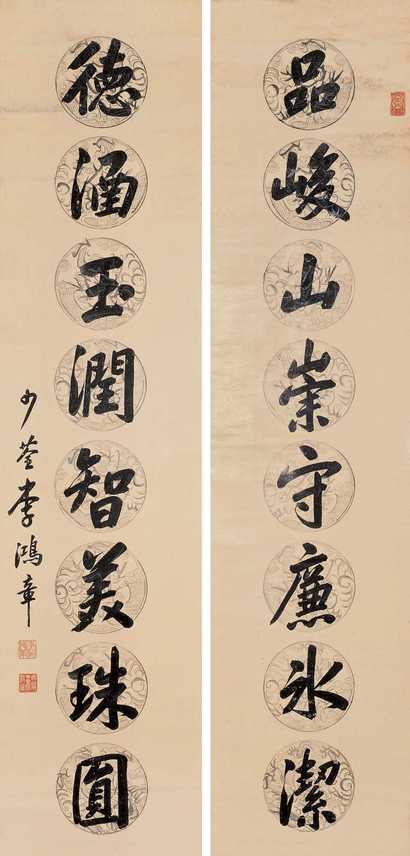 品峻山崇守廉冰潔
德涵玉潤智美珠圓
少荃李鴻章